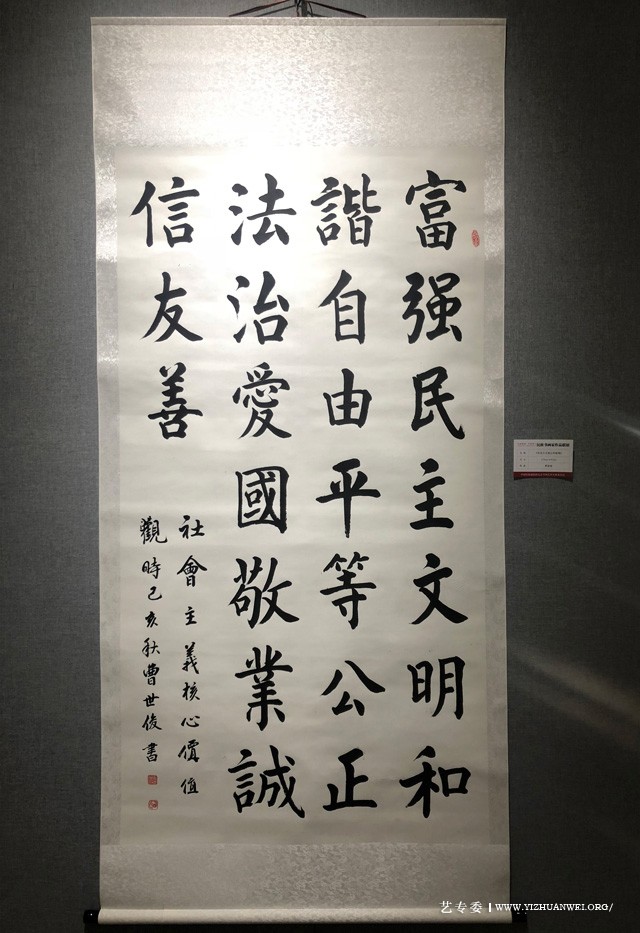 富强民主文明和
諧自由平等公正
法治愛國敬業誠
信友善
社會主義核心價值
觀時己亥秋曹世俊書
艺专委 | WWW.YIZHUANWEI.ORG/